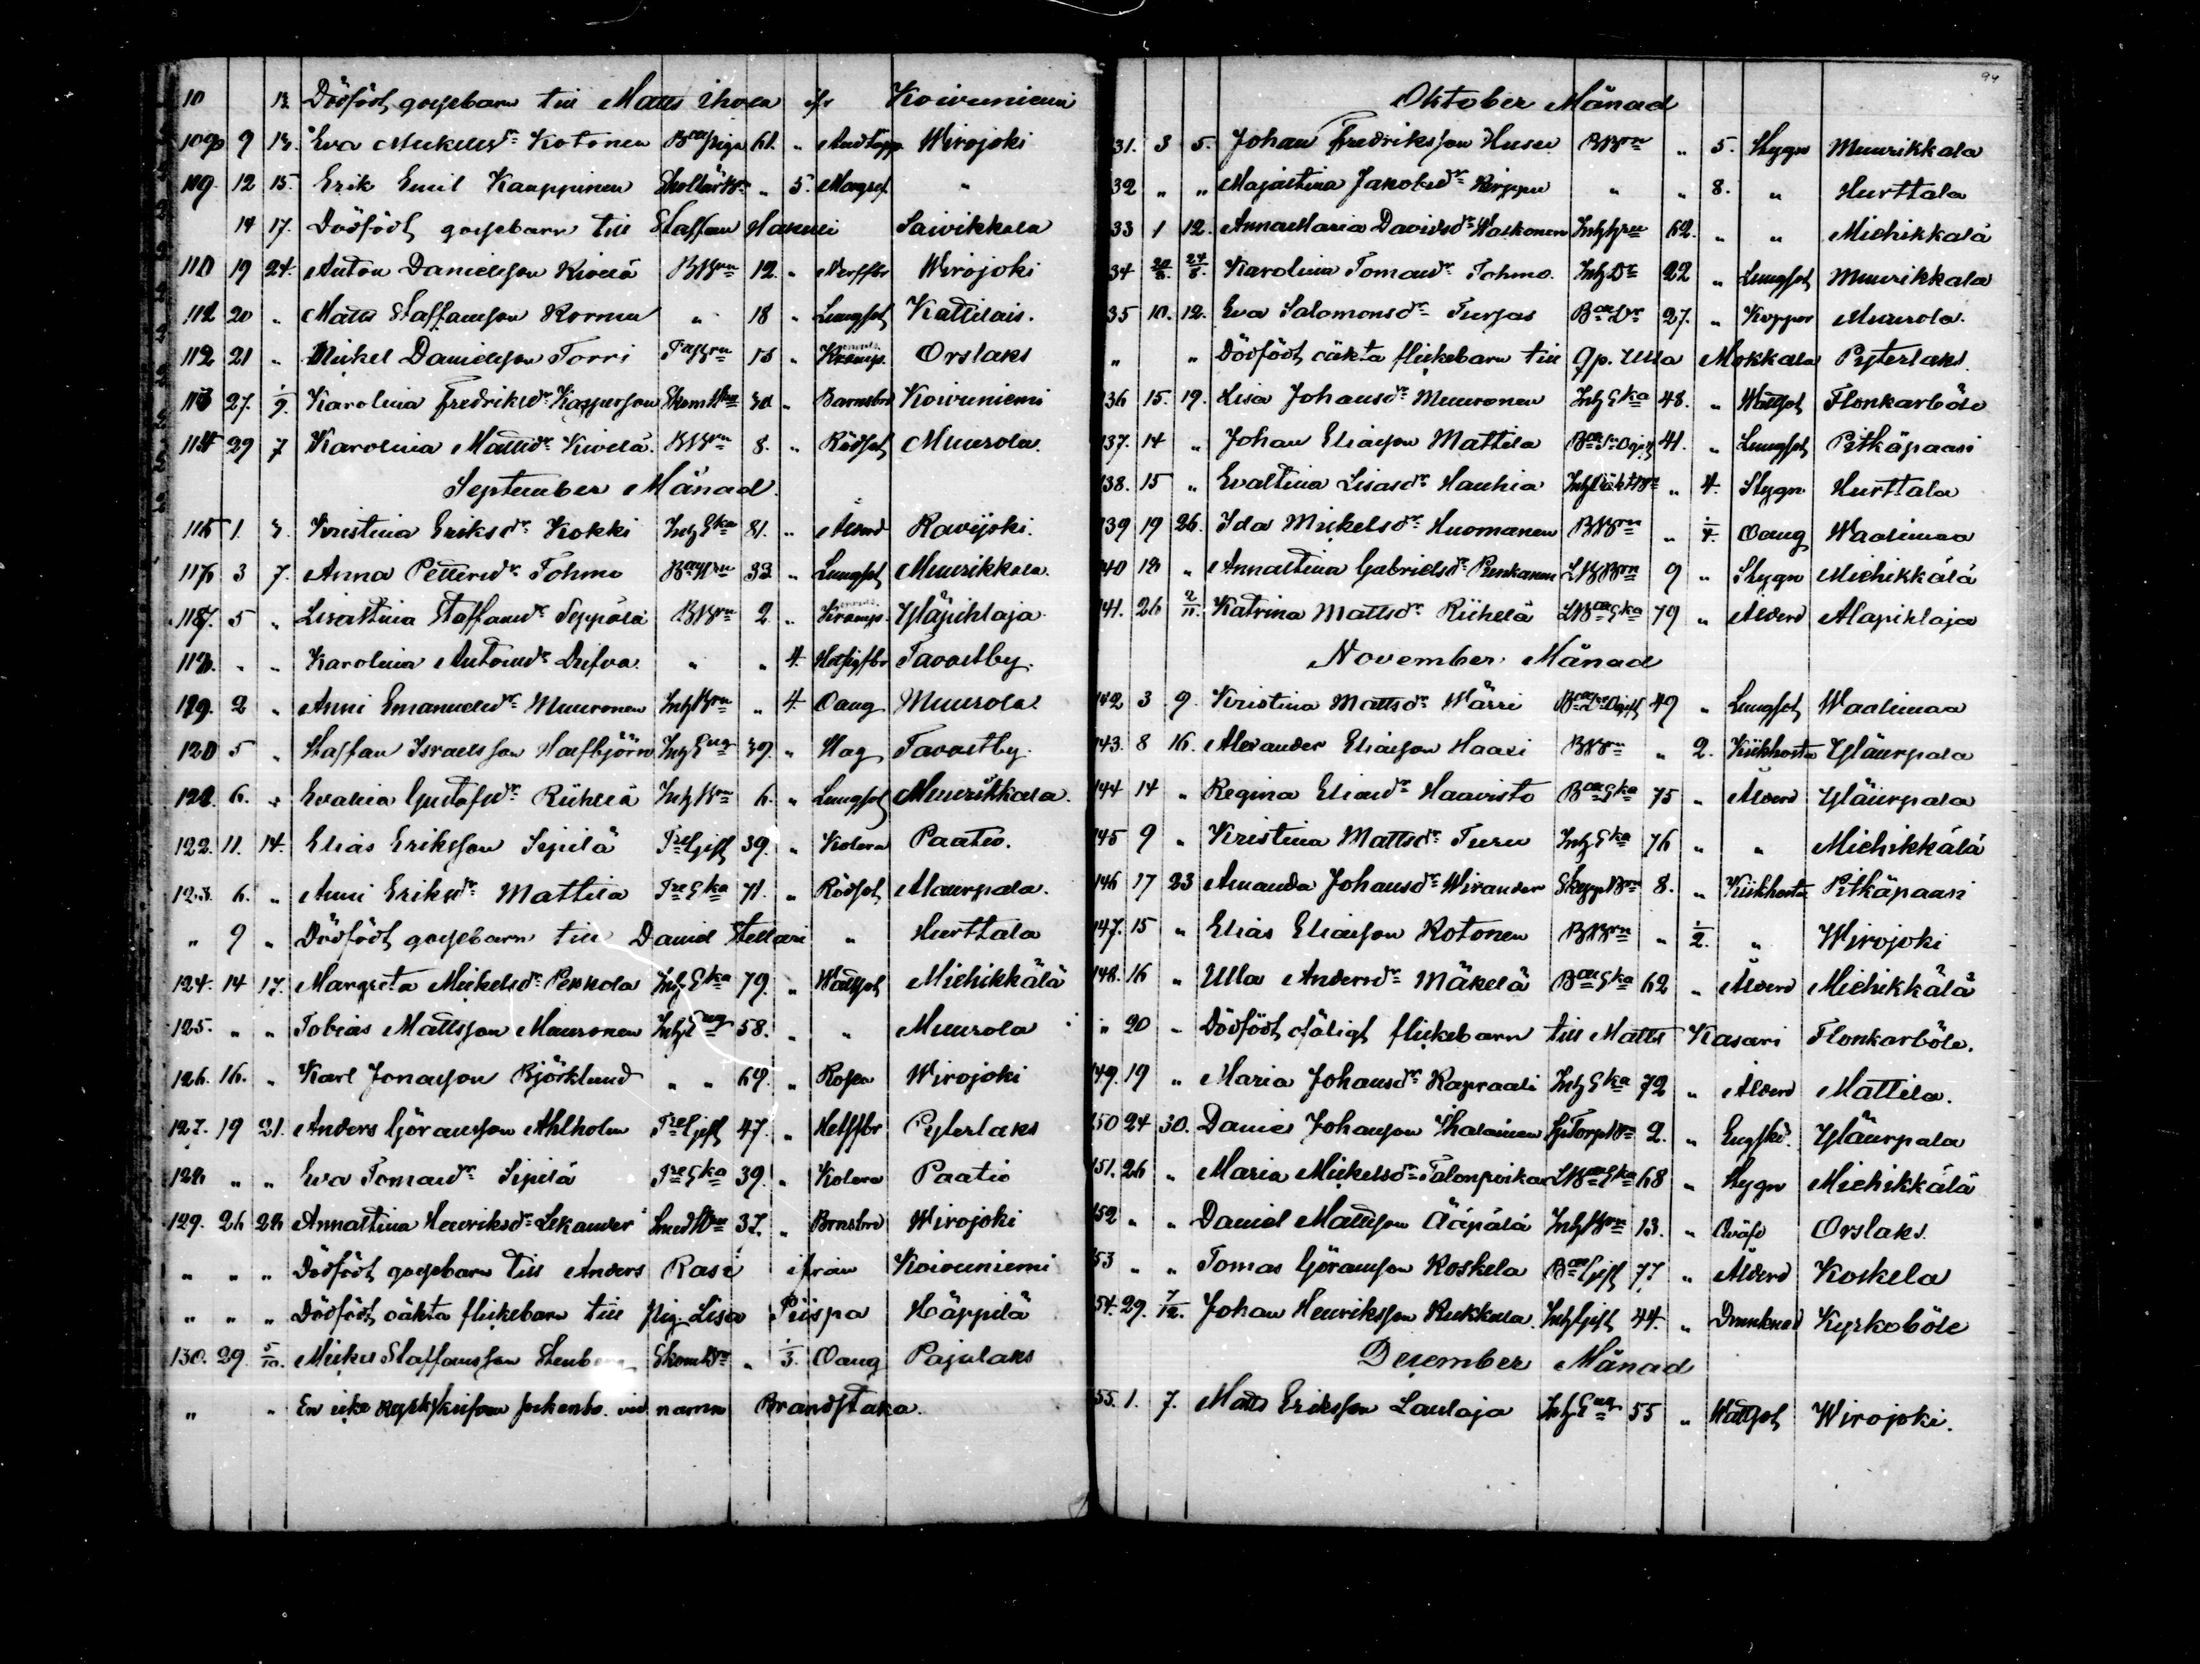 10 13. Dödfödt gossebarn till Matts Ihola ifr Koivuniemi
109 9 13. Eva Mickelsdr Kotonen Bdepiga 61. " Andtäpp Wirojoki
110. 12 15. Erik Emil Kauppinen " 5. Magsot "
14 17. Dödfödt gossebarn till Staffan Hakuli Saivikkala
111 19 24. Anton Danielsson Kivelä BBrn 12. " Nerffbr Wirojoki
112 20 " Matts Staffansson Kormu " 18 " Lungsot Kattilais.
112 21 " Mickel Danielsson Torri 15 " Kramp. Orslaks
113 27. 1/9. Karolina Fredriksdr Kasperson 30 " Barnsbrd Koivuniemi
114 29 7 Karolina Mattsdr Kivelä BBrn 8. " Rödsot Muurola.
September Månad.
115 1. 3. Kristina Eriksdr Kokki InhEka 81. " Ålderd Ravijoki.
116 3 7. Anna Pettersdr Tohmo 33 " Lungsot Muurikkala.
117. 5 " Lisastina Staffansdr Seppälä BBrn 2. " Kramp. Yläpihlaja
118. " " Karolina Antonsdr Dufva " " 4. Tavastby.
119. 2 " Anni Emanuelsdr Muuronen InhBrn " 4. Oang Muurola
120 5 " Staffan Israelsson Hasfbjörn InhEng 39. " Slag Tavastby.
121. 6. " Evalisa Gustafsdr Riihelä InhBrn 6. " Lungsot Muurikkala.
122. 11. 14. Elias Eriksson Sipilä TreGift 39. " Kolera Paatio.
123. 6. " Anni Eriksdr Mattila TreEka 71. " Rödsot Alaurpala.
" 9 " Dödfödt gossebarn till Daniel Stellari " Hurttala
124. 14 17. Margreta Mickelsdr Pekkola InhEka 79. " Wattsot Miehikkälä
125. " " Tobias Mattsson Muuronen InhEng 58. " " Muurola
126. 16. " Karl Jonasson Björklund " " 69. " Rosen Wirojoki
127. 19 21. Anders Göransson Ahlholm TreGift 47. " Hetffbr Pyterlaks
128 " " Eva Tomasdr Sipilä TreEka 39. " Kolera Paatio
129. 26 28 Annastina Henriksdr Lekander 37. " Brnsbrd Wirojoki
" " " Dödfödt gossebarn till Anders Rasi ifrån Koivuniemi
" " " Dödfödt oäkta flickebarn till pig. Lisa Piispa Häppilä
130. 29. 5/10. Mickel Staffansson Stenberg " 1/3. Oang Pajulaks
" " En icke namn Brandstaka.
94
Oktober Månad
31. 3 5. Johan Fredriksson Husu BBrn " 5. Stygn Muurikkala
32 " " Majastina Jakobsdr Kirppu " " 8. " Hurttala
33 1 12. Annamaria Davidsdr Waskonen 62. " " Miehikkälä
34 20/8. 24/8. Karolina Tomasdr Tohmo. InhDr 22 " Lungsot Muurikkala
35 10. 12. Eva Salomonsdr Turjas BdeDr 27. " Koppor Muurola.
" " Dödfödt oäkta flickebarn till Qp. Ulla Mokkala Pyterlaks
136 15. 19. Lisa Johansdr Muuronen InhEka 48. " Wattsot Flonkarböle
137. 14 " Johan Eliasson Mattila 41. " Lungsot Pitkäpaasi
138. 15 " Evastina Lisasdr Hanhia " 4. Stygn Hurttala
139 19 26. Ida Mickelsdr Huomanen BBrn " 1/4. Oang Waalimaa
140 18 " Annastina Gabrielsdr LBBrn 9 " Stygn Miehikkälä
141. 26 2/11. Katrina Mattsdr Riihelä LBdeEka 79 " Ålderd Alapihlaja
November Månad
142 3 9. Kristina Mattsdr Wärri 49 " Lungsot Waalimaa
143. 8 16. Alexander Eliasson Haasi BBrn " 2. Kikhosta Yläurpala
144 14 " Regina Eliasdr Haavisto BdeEka 75 " Ålderd Yläurpala
145 9 " Kristina Mattsdr Turu InhEka 76 " " Miehikkälä
146 17 23 Amanda Johansdr Wirander SkeppBrn 8. " Kikhosta Pitkäpaasi
147. 15 " Elias Eliasson Kotonen BBrn " 1/2. " Wirojoki
148. 16 " Ulla Andersdr Mäkelä BdeEka 62 " Ålderd Miehikkälä
" 20 " Dödfödt ofäligt flickebarn till Matts Kasari Flonkarböle.
149. 19 " Maria Johansdr Kapraali InhEka 72 " Ålderd Mattila.
150 24 30. Daniel Johansson Ihalainen 2. " Engskd. Yläurpala
151. 26 " Maria Mickelsdr Talonpoika LBdeEka 68 " Stygn Miehikkälä
152 " " Daniel Mattsson Ääpälä InhBrn 13. " Qväfd Orslaks.
53 " " Tomas Göransson Koskela BdeGift 77. " Ålderd Koskela
54. 29. 7/12. Johan Henriksson Kukkala InhGift 44. " Drunknad Kyrkoböle
Desember Månad
55. 1. 7. Matts Eriksson Laulaja InhEng 55 " Wattsot Wirojoki.